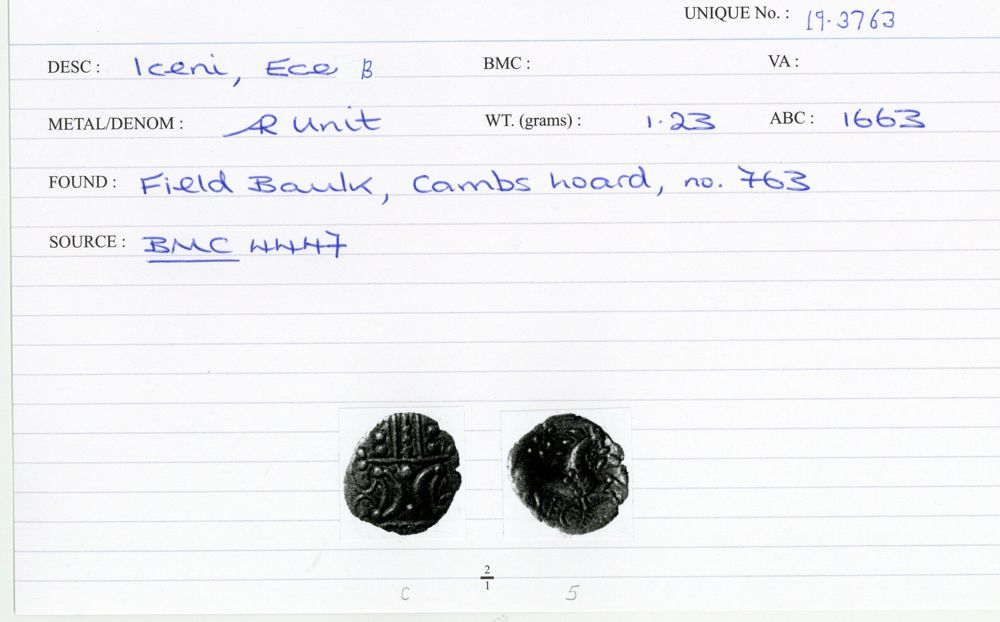 UNIQUE No. : 19.3763
DESC : Iceni, Ece B BMC : VA :
METAL/DENOM : AR Unit WT. (grams) : 1.23 ABC : 1663
FOUND : Field Baulk, Cambs hoard, no. 763
SOURCE : BMC 4447
2
1
C 5